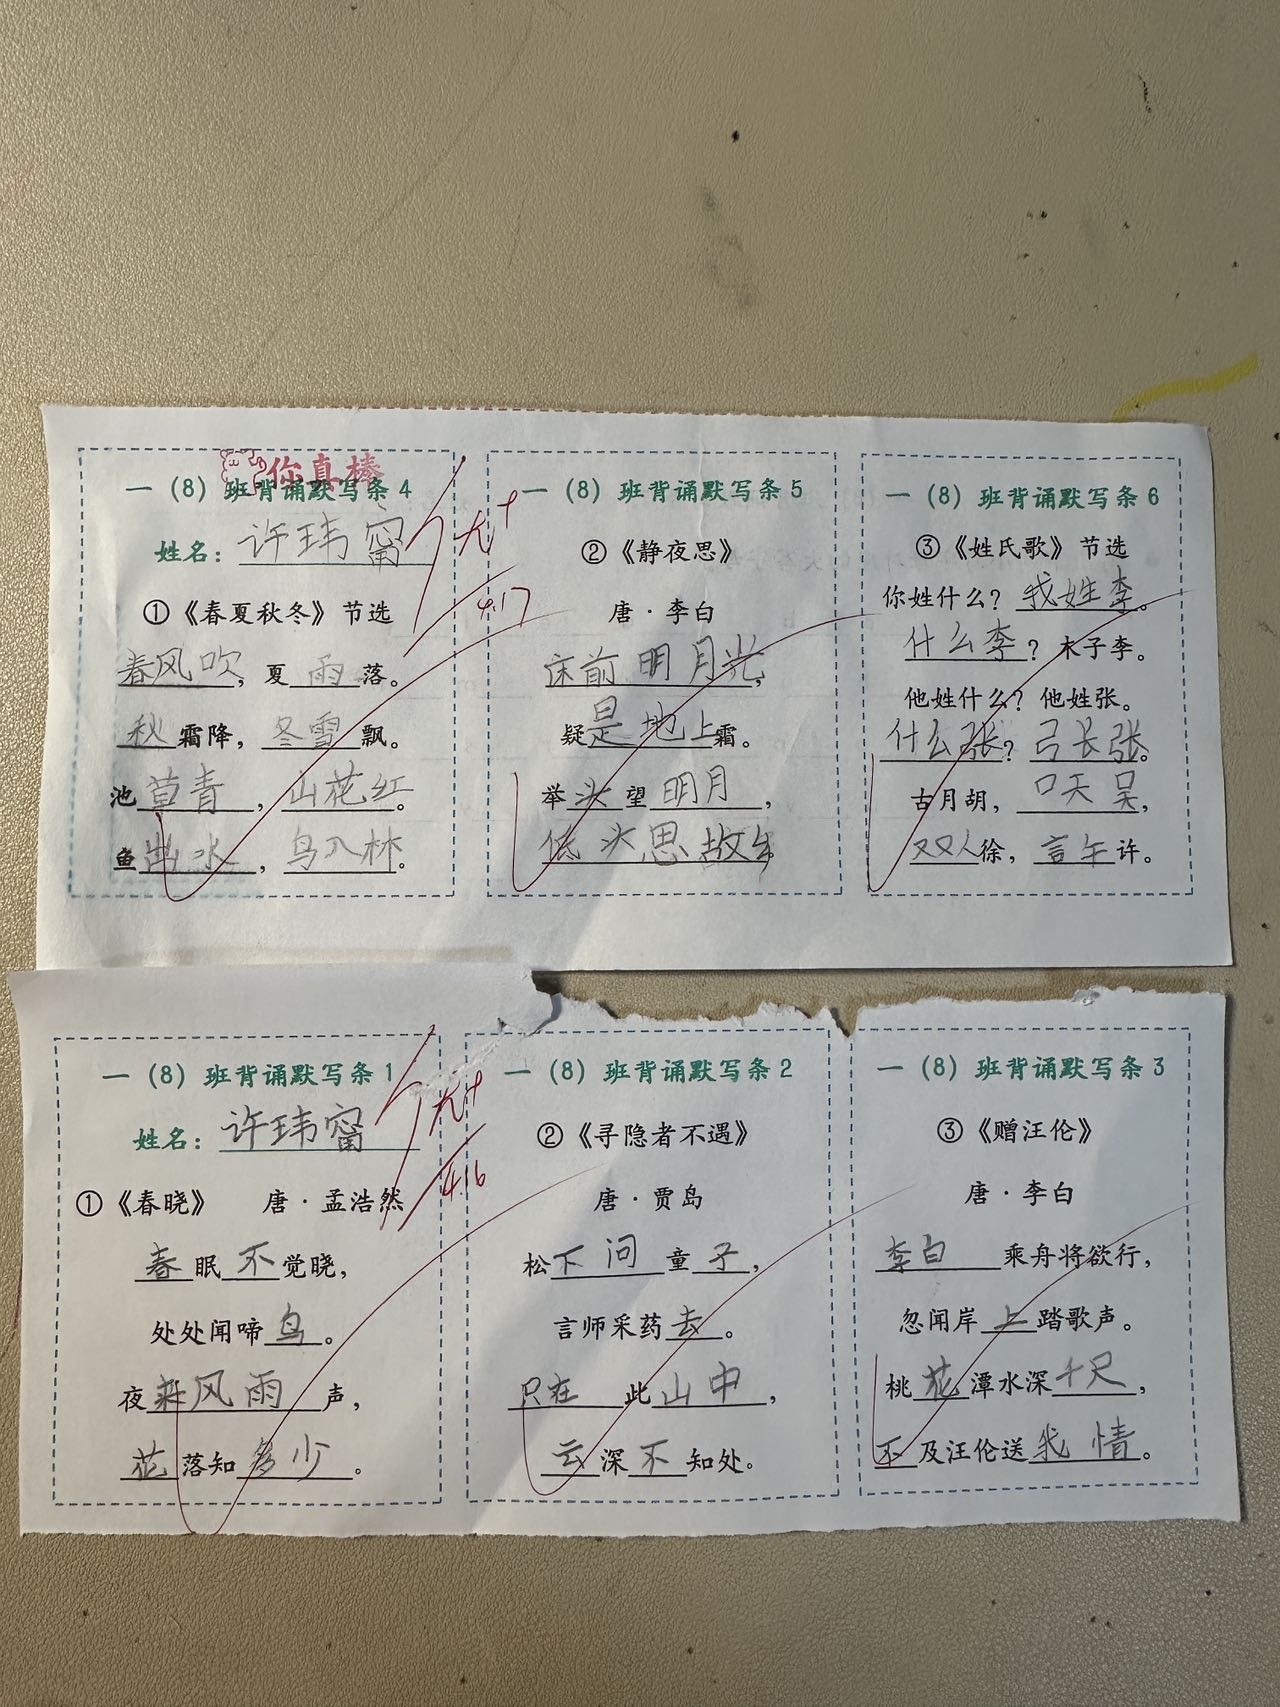 你真棒
一（8）班背诵默写条4
姓名：许玮甯
优+
4.17
①《春夏秋冬》节选
春风吹，夏雨落。
秋霜降，冬雪飘。
池草青，山花红。
鱼出水，鸟入林。
一（8）班背诵默写条5
②《静夜思》
唐·李白
床前明月光，
疑是地上霜。
举头望明月，
低头思故乡
一（8）班背诵默写条6
③《姓氏歌》节选
你姓什么？我姓李。
什么李？木子李。
他姓什么？他姓张。
什么张？弓长张。
古月胡，口天吴，
双人徐，言午许。
一（8）班背诵默写条1
姓名：许玮甯
优+
4.16
①《春晓》 唐·孟浩然
春眠不觉晓，
处处闻啼鸟。
夜来风雨声，
花落知多少。
一（8）班背诵默写条2
②《寻隐者不遇》
唐·贾岛
松下问童子，
言师采药去。
只在此山中，
云深不知处。
一（8）班背诵默写条3
③《赠汪伦》
唐·李白
李白乘舟将欲行，
忽闻岸上踏歌声。
桃花潭水深千尺，
不及汪伦送我情。